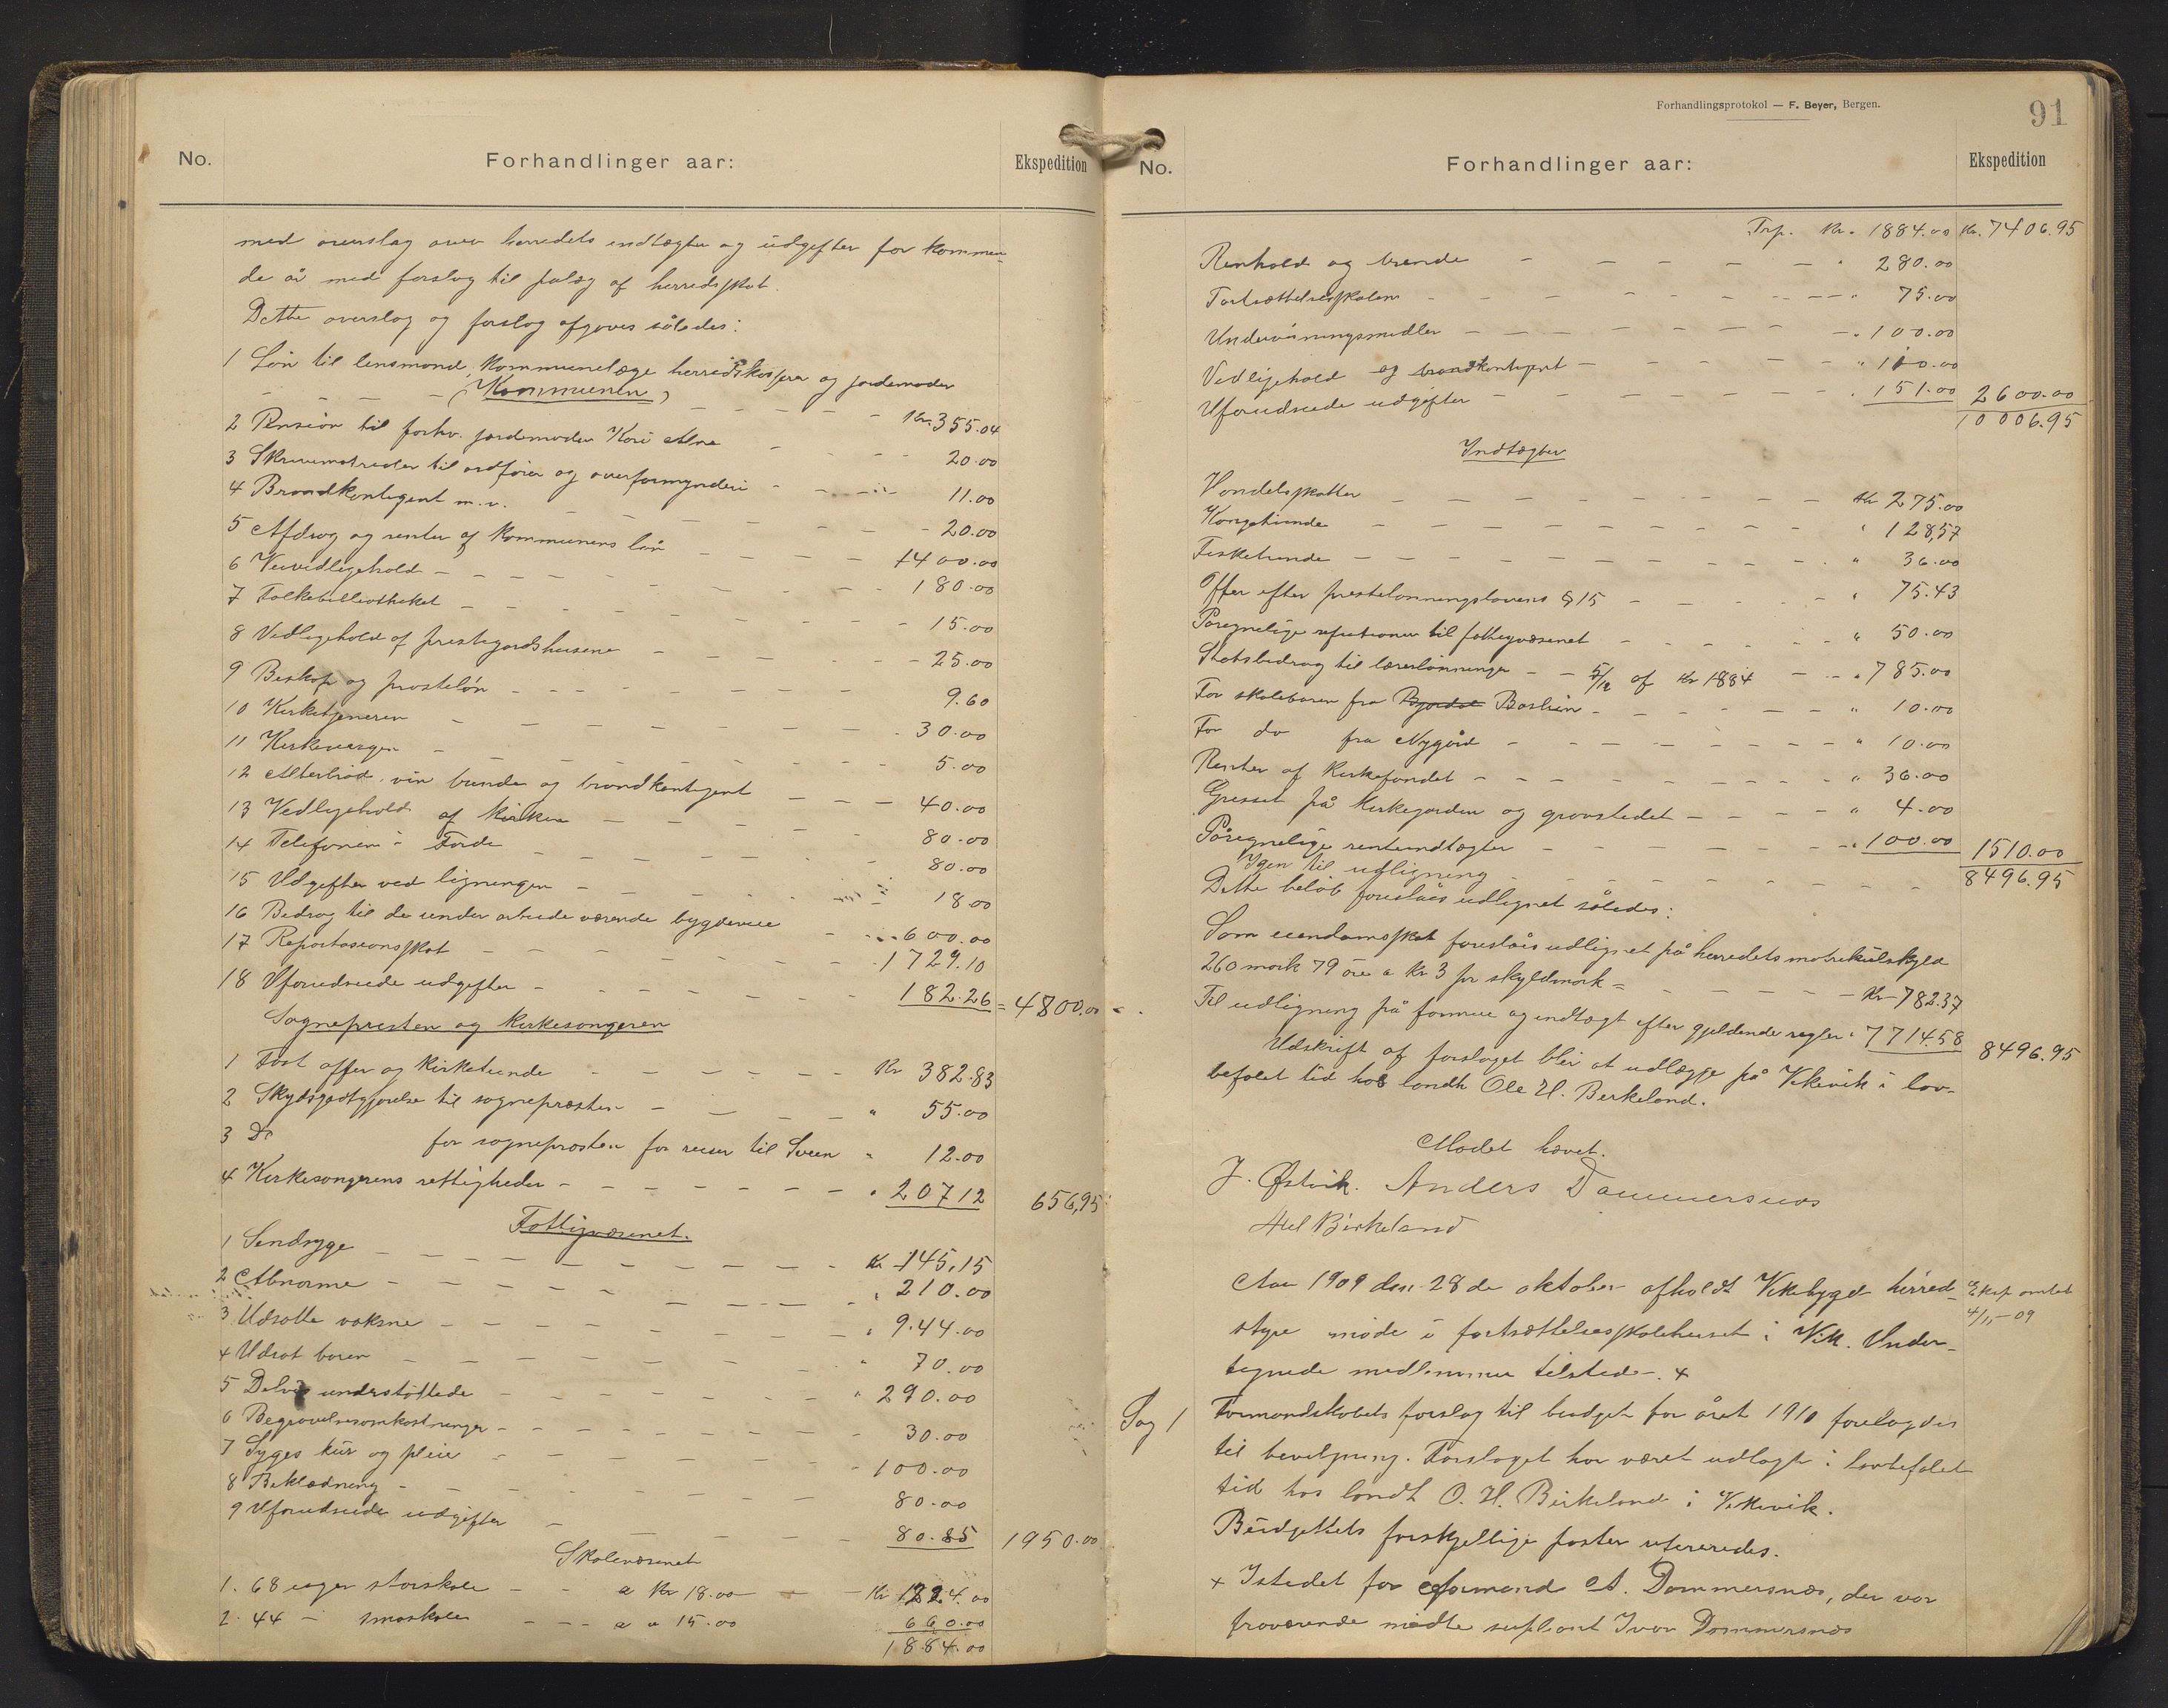 No. Forhandlinger aar: Ekspedition
med overslag over herredets indtægter og udgifter for kommen-
de år med forslag til pålæg af herredsskat.
Dette overslag og forslag afgaves således:
1 Løn til lensmand, kommunelæge herredskasserer og jordemoder
– – – – (Kommunen) – – – – – Kr. 355.04
2 Pension til forhv. jordemoder Kari Alne – – – – 20.00
3 Skrivematrialer til ordfører og overformynderi – – – 11.00
4 Brandkontigent m.v. – – – – – – 20.00
5 Afdrag og renter af kommunens lån – – – – 1400.00
6 Veivedligehold – – – – – – – 180.00
7 Folkebibliotheket – – – – – – – 15.00
8 Vedligehold af prestegårdshusene – – – – – 25.00
9 Beskop og prosteløn – – – – – – 9.60
10 Kirketjeneren – – – – – – – 30.00
11 Kirkevergen – – – – – – – 5.00
12 Alterbrød, vin brænde og brandkontigent – – – 40.00
13 Vedligehold af kirken – – – – – 80.00
14 Telefonen i Førde – – – – – – 80.00
15 Udgifter ved ligningen – – – – – 18.00
16 Bidrag til de under arbeide værende bygdeveie – – 600.00
17 Repartasionsskat – – – – – – 1729.10
18 Uforudseede udgifter – – – – – – 182.26 = 4800.00
Sognepresten og kirkesangeren
1 Fast offer og kirketiende – – – – – – Kr 382.83
2 Skydsgodtgjørelse til sognepresten – – – – " 55.00
3 Do for sognepresten for reiser til Sveen " 12.00
4 Kirkesangerens rettigheder – – – – – – " 207.12 656,95
Fattigvæsenet.
1 Sindsyge – – – – – – – – Kr 145,15
2 Abnorme – – – – – – – – " 210.00
3 Udsatte voksne – – – – – – – " 944.00
4 Udsat børn – – – – – – – " 70.00
5 Delvis understøttede – – – – – – " 290.00
6 Begravelsesomkostninger – – – – – – – 30.00
7 Syges kur og pleie – – – – – – – 100.00
8 Beklædning – – – – – – – 80.00
9 Uforudseede udgifter – – – – 80.85 1950.00
Skolevæsenet
1. 68 uger storskole – – a Kr 18.00 – – Kr 1224.00
2. 44 – småskole – – – a " 15.00 660.00
1884.00
Forhandlingsprotokol — F. Beyer, Bergen.
91
No. Forhandlinger aar: Ekspedition
Trp. Kr. 1884.00 Kr. 7406.95
Renhold og brænde – – – – – – " 280.00
Fortsættelsesskolen – – – – – – – " 75.00
Undervisningsmidler – – – – – – – " 100.00
Vedligehold og brandkontigent – – – – – " 110.00
Uforudseede udgifter – – – – – – – " 151.00 2600.00
10006.95
Indtægter
Handelsskatter – – – – – – – – Kr 275.00
Kongetiende – – – – – – – – " 128,57
Fisketiende – – – – – – – – " 36.00
Offer efter prestelønningslovens § 15 – – – – " 75.43
Påregnelige refusioner til fattigvæsenet – – – – " 50.00
Statsbidrag til lærerlønninger – – 5/12 af Kr 1884 – – " 785.00
For skolebaren fra Bjordal Baslien – – – – – – " 10.00
For do fra Nygård – – – – – – – " 10.00
Renter af kirkefondet – – – – – – – – " 36.00
Græsset på kirkegården og gravstedet – – – – " 4.00
Påregnelige renteindtægter – – – – – – – " 100.00 1510.00
Igen til udligning – – – – – – – – – 8496.95
Dette beløb foreslåes udlignet således:
Som eiendomsskat foreslåes udlignet på herredets matrikulskyld
260 mark 79 øre a Kr 3 pr skyldmark = – – – – Kr 782.37
Til udligning på formue og indtægt efter gjeldende regler " 7714.58 8496.95
Udskrift af forslaget blir at udlægge på Vikevik i lov-
befalet tid hos landh. Ole H. Berkeland.
Mødet hævet.
J. Østvik. Anders Dommersnes
H H Birkeland
Aar 1909 den 28de oktober afholdt Vikebygd herred- Eksp amtet
styre møde i fortsættelsesskolehuset i Vik. Under- 4/11-09
tegnede medlemmer tilstede. +
Sag 1 Formandskabets forslag til budget for året 1910 forelagdes
til bevilgning. Forslaget har været udlagt i lovbefalet
tid hos landh O. H. Birkeland i Vikevik.
Budgettets forskjellige poster refereredes.
+ Istedet for formand A. Dommersnæs, der var
fraværende mødte supleant Ivar Dommersnæs